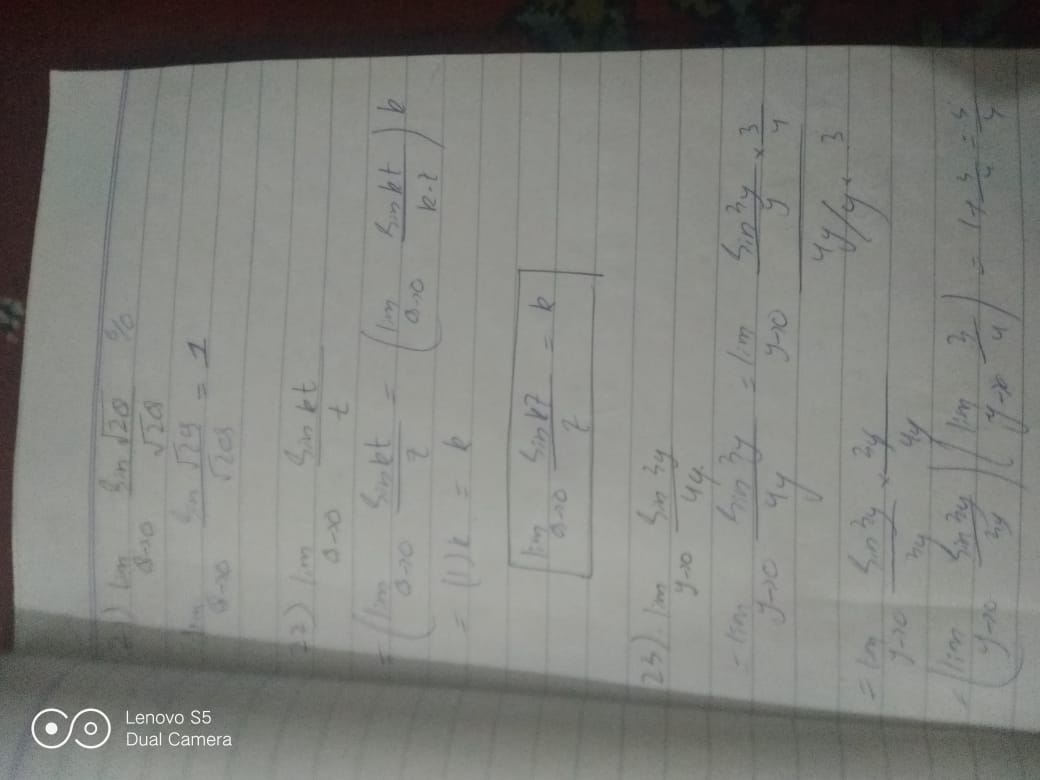 lim θ→0 sin√2θ / √2θ 0/0
lim θ→0 sin√2θ / √2θ = 1
22) lim θ→0 sin kt / t
= (lim θ→0 sin kt / t = (lim θ→0 sin kt / k·t) k
= (1) k = k
lim θ→0 sin kt / t = k
23) lim y→0 sin 3y / 4y
= lim y→0 sin 3y / 4y = lim y→0 sin 3y / y × 3/4
4y/y × 3
= lim y→0 sin 3y / 3y × 3y / 4y
= (lim y→0 sin 3y / 3y) (lim y→0 3/4) = 1 × 3/4 = 3/4
Lenovo S5
Dual Camera